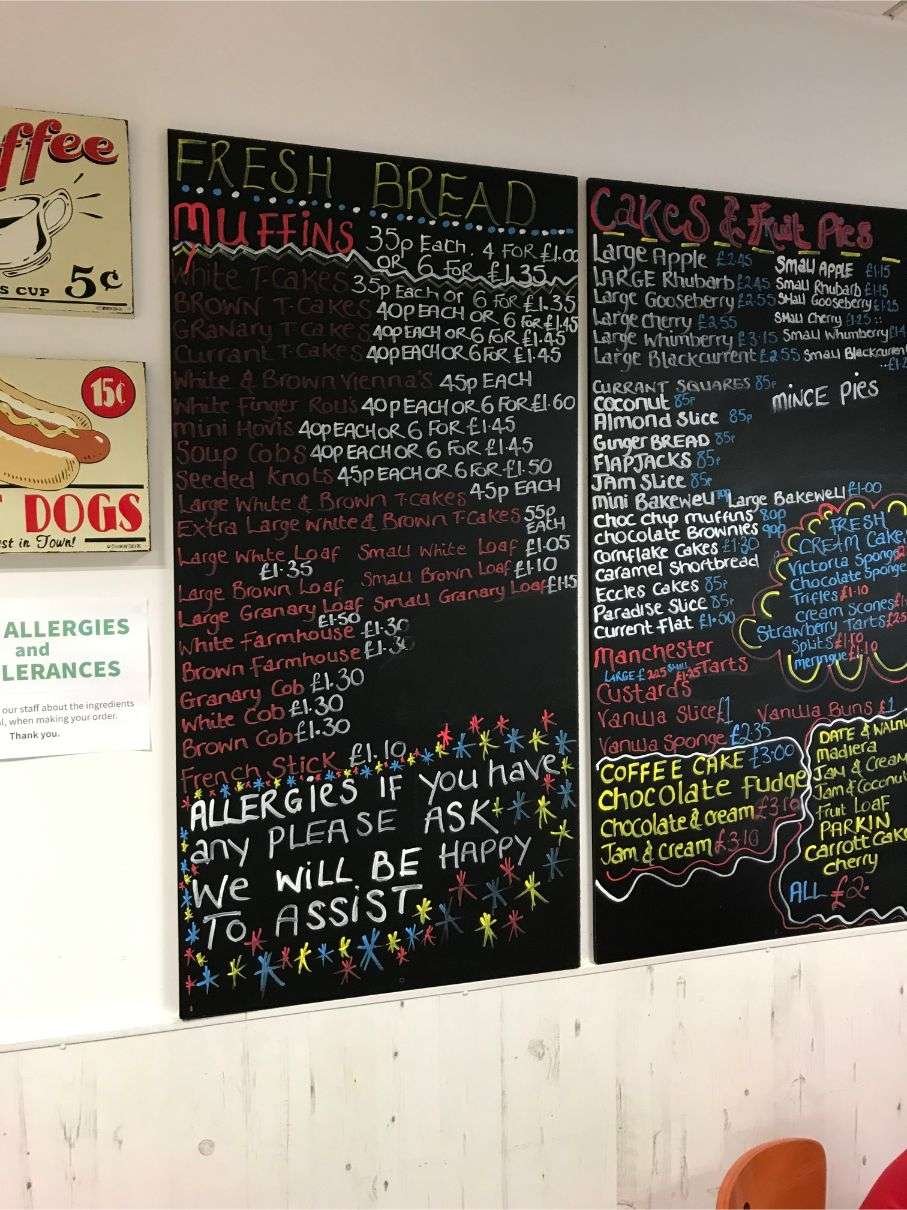 ffee
S CUP 5¢
15¢
DOGS
st in Town!
ALLERGIES
and
LERANCES
our staff about the ingredients
l, when making your order.
Thank you.
FRESH BREAD
MUFFiNS 35p Each. 4 FOR £1.00
OR 6 FOR £1.35
White T-Cakes 35p Each or 6 FOR £1.35
BROWN T-Cakes 40p EACH OR 6 FOR £1.45
GRaNary T-Cakes 40p EACH OR 6 FOR £1.45
Currant T-Cakes 40p EACH OR 6 FOR £1.45
White & Brown Vienna's 45p EACH
White Finger Rolls 40p EACH OR 6 FOR £1.60
mini Hovis 40p EACH OR 6 FOR £1.45
Soup Cobs 40p EACH OR 6 FOR £1.45
Seeded Knots 45p EACH OR 6 FOR £1.50
Large White & Brown T-cakes 45p EACH
Extra Large White & Brown T-Cakes 55p EACH
Large White Loaf £1.35 Small White Loaf £1.05
Large Brown Loaf Small Brown Loaf £1.10
Large Granary Loaf £1.50 Small Granary Loaf £1.15
White Farmhouse £1.30
Brown Farmhouse £1.30
Granary Cob £1.30
White Cob £1.30
Brown Cob £1.30
French Stick £1.10
ALLERGiES IF you have
any PLEASE ASK
We WiLL BE HAPPY
TO ASSiST
Cakes & Fruit Pies
Large Apple £2.45 Small APPLE £1.15
LARGE Rhubarb £2.45 Small Rhubarb £1.15
Large Gooseberry £2.55 Small Gooseberry £1.25
Large cherry £2.55 Small Cherry
Large Whumberry £3.15 Small Whumberry
Large Blackcurrent £2.55 Small Blackcurrent
CURRANT SQUARES 85p
mince Pies
Coconut 85p
Almond Slice 85p
Ginger BREAD 85p
FlapJacks 85p
JAm Slice 85p
mini Bakewell Large Bakewell £1.00
Choc chip muffins 80p
chocolate Brownies 90p
Cornflake Cakes £1.30
Caramel Shortbread
Eccles Cakes 85p
Paradise Slice 85p
Current flat £1.50
FRESH
CREAM Cakes
Victoria Sponge
Chocolate Sponge
Trifles £1.10
cream Scones
Strawberry Tarts
Splits £1.10
meringue £1.10
Manchester
LARGE £2.25 SMALL £1.25 Tarts
Custards
Vanilla Slice £1 Vanilla Buns £1
Vanilla Sponge £2.35
COFFEE CAKE £3.00
Chocolate Fudge
Chocolate & cream £3.10
Jam & cream £3.10
DATE & WALNU
madiera
Jam & Cream
Jam & Coconut
Fruit Loaf
PARKIN
Carrott Cake
cherry
ALL £2.